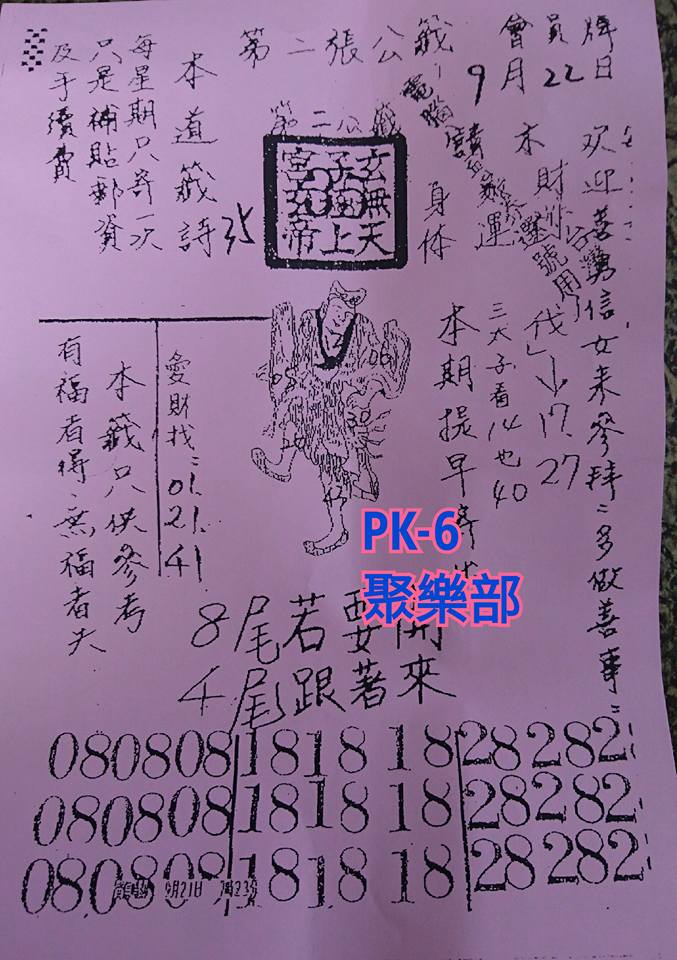 會員牌
9月22日
第二張公籤
第二公籤
玄無天
子上
宮玄帝
本道籤詩 35
每星期只寄一次
只是補貼郵資
及手續費
欢迎善男信女来參拜:多做善事:
本財
身体
運
找↓17.27
三太子看14也40
本期提早寄
愛財找:01.21.41
本籤只供參考
有福者得、無福者失
PK-6
聚樂部
8尾若要開
4尾跟著來
080808 1818 18 28 282
080808 1818 18 28 282
080808 1818 18 28 282
9月21日